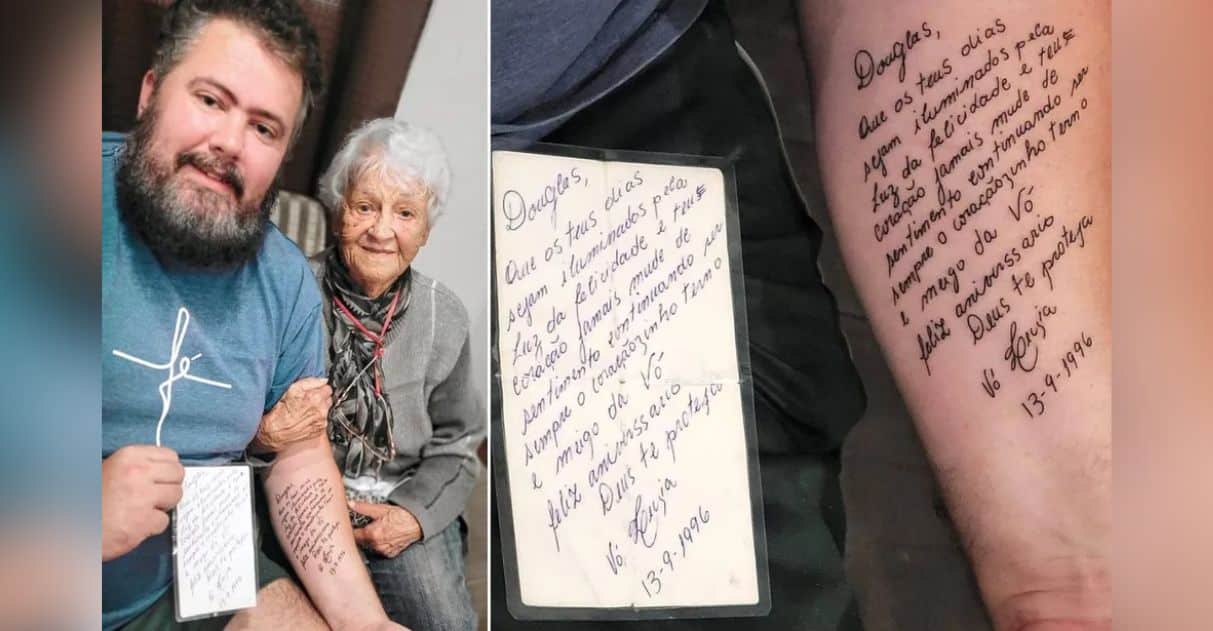 fé
Douglas,
Que os teus dias
sejam iluminados pela
Luz da felicidade e teu
coração jamais mude de
sentimento continuando ser
sempre o coraçãozinho terno
e meigo da Vó
feliz anivirssario
Deus te proteja
Vó,
13-9-1996
Douglas,
Que os teus dias
sejam iluminados pela
Luz da felicidade e teu
coração jamais mude de
sentimento continuando ser
sempre o coraçãozinho terno
e meigo da Vó
feliz anivirssario
Deus te proteja
Vó
13-9-1996